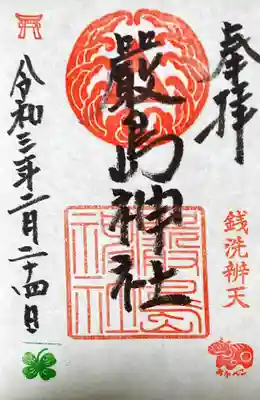 奉拝
嚴島神社
銭洗辨天
嚴島神社
令和三年二月二十四日